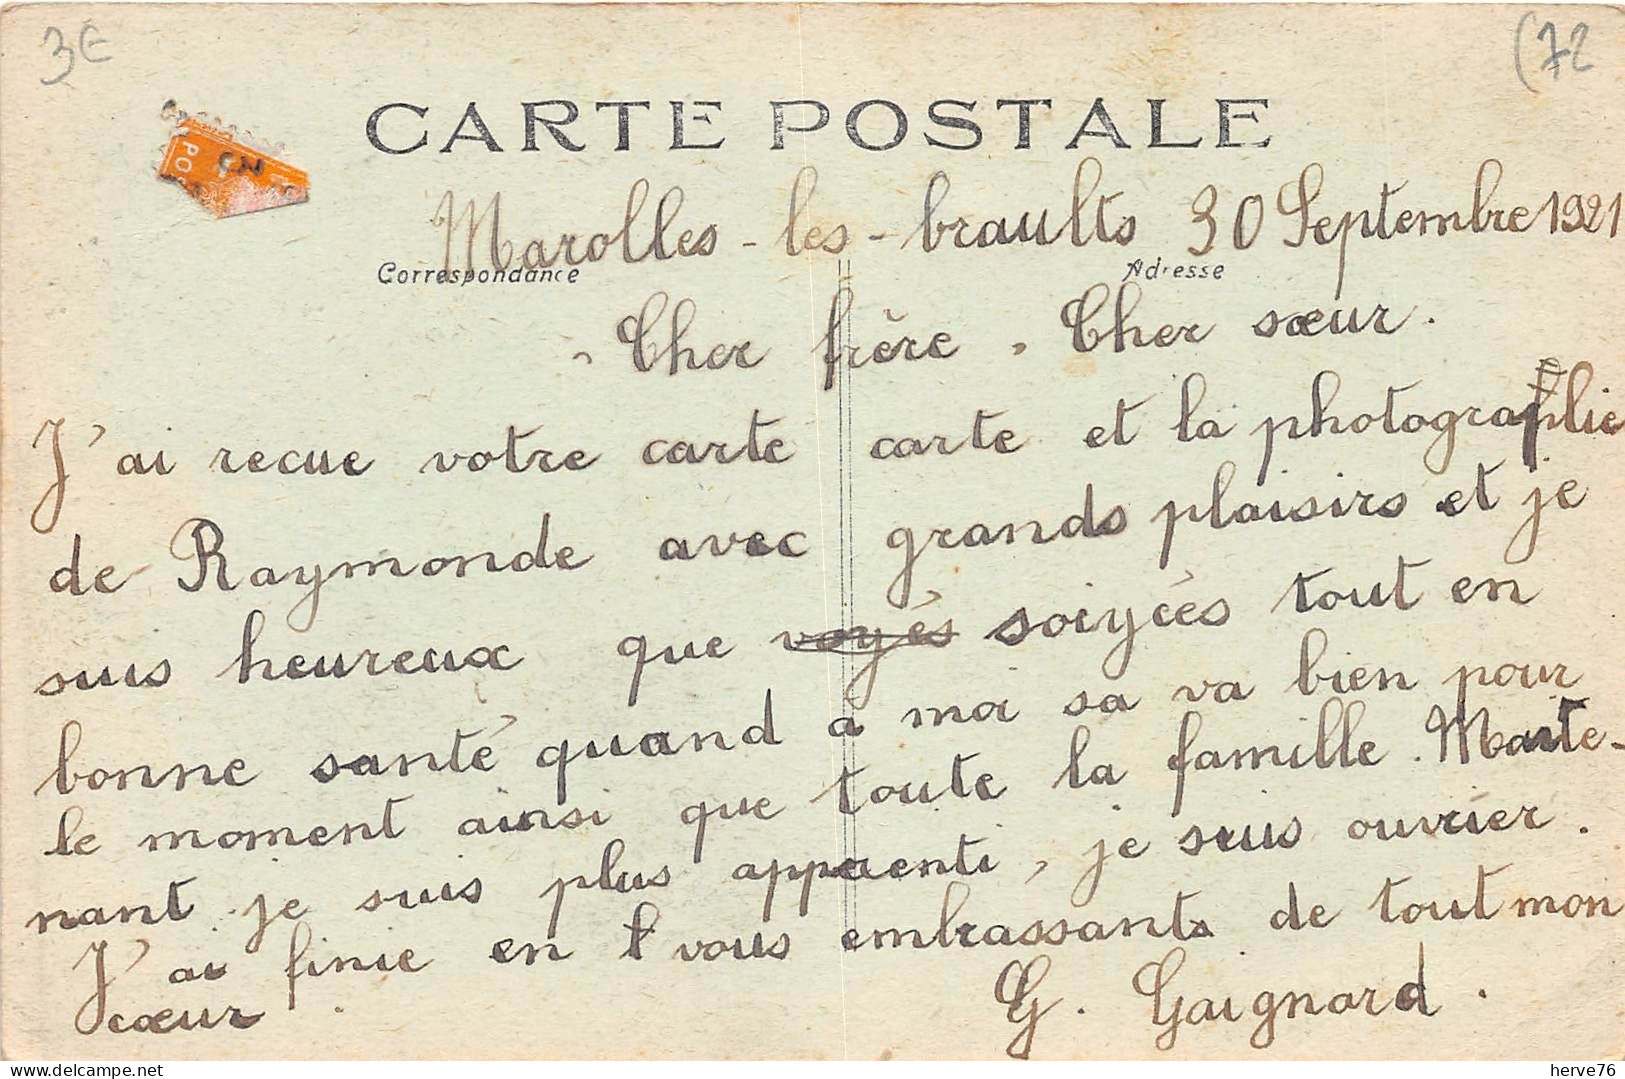 3€
(72
CARTE POSTALE
Marolles-les-braults 30 Septembre 1921
Correspondance
Adresse
Cher frère, Cher sœur.
J'ai recue votre carte carte et la photographie
de Raymonde avec grands plaisirs et je
suis heureux que voyés soiyées tout en
bonne santé quand à moi sa va bien pour
le moment ainsi que toute la famille. Mainte-
nant je suis plus apprenti, je suis ouvrier.
J'ai finie en vous embrassant de tout mon
cœur.
G. Gaignard.
delcampe.net
herve76